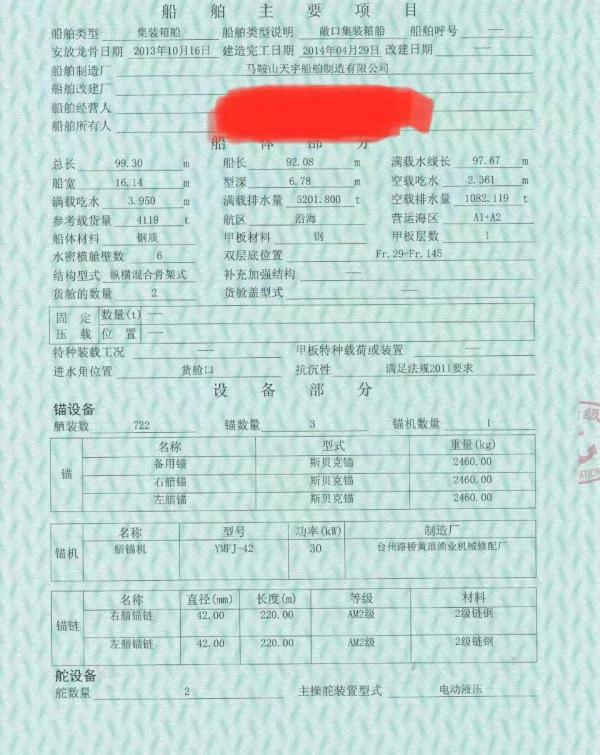 船舶主要项目
船舶类型 集装箱船 船舶类型说明 敞口集装箱船 船舶呼号 —
安放龙骨日期 2013年10月16日 建造完工日期 2014年04月29日 改建日期 —
船舶制造厂 马鞍山天宇船舶制造有限公司
船舶改建厂
船舶经营人
船舶所有人
船体部分
总长 99.30 m 船长 92.08 m 满载水线长 97.67 m
船宽 16.14 m 型深 6.78 m 空载吃水 2.361 m
满载吃水 3.950 m 满载排水量 5201.800 t 空载排水量 1082.119 t
参考载货量 4119 t 航区 沿海 营运海区 A1+A2
船体材料 钢质 甲板材料 钢 甲板层数 1
水密横舱壁数 6 双层底位置 Fr.29-Fr.145
结构型式 纵横混合骨架式 补充加强结构 —
货舱的数量 2 货舱盖型式 —
固定 数量(t) —
压载 位置 —
特种装载工况 — 甲板特种载荷或装置 —
进水角位置 货舱口 抗沉性 满足法规2011要求
设备部分
锚设备
舾装数 722 锚数量 3 锚机数量 1
锚 名称 型式 重量(kg)
备用锚 斯贝克锚 2460.00
右艏锚 斯贝克锚 2460.00
左艏锚 斯贝克锚 2460.00
锚机 名称 型号 功率(kW) 制造厂
艏锚机 YMFJ-42 30 台州路桥黄琅渔业机械修配厂
锚链 名称 直径(mm) 长度(m) 等级 材料
右艏锚链 42.00 220.00 AM2级 2级链钢
左艏锚链 42.00 220.00 AM2级 2级链钢
舵设备
舵数量 2 主操舵装置型式 电动液压